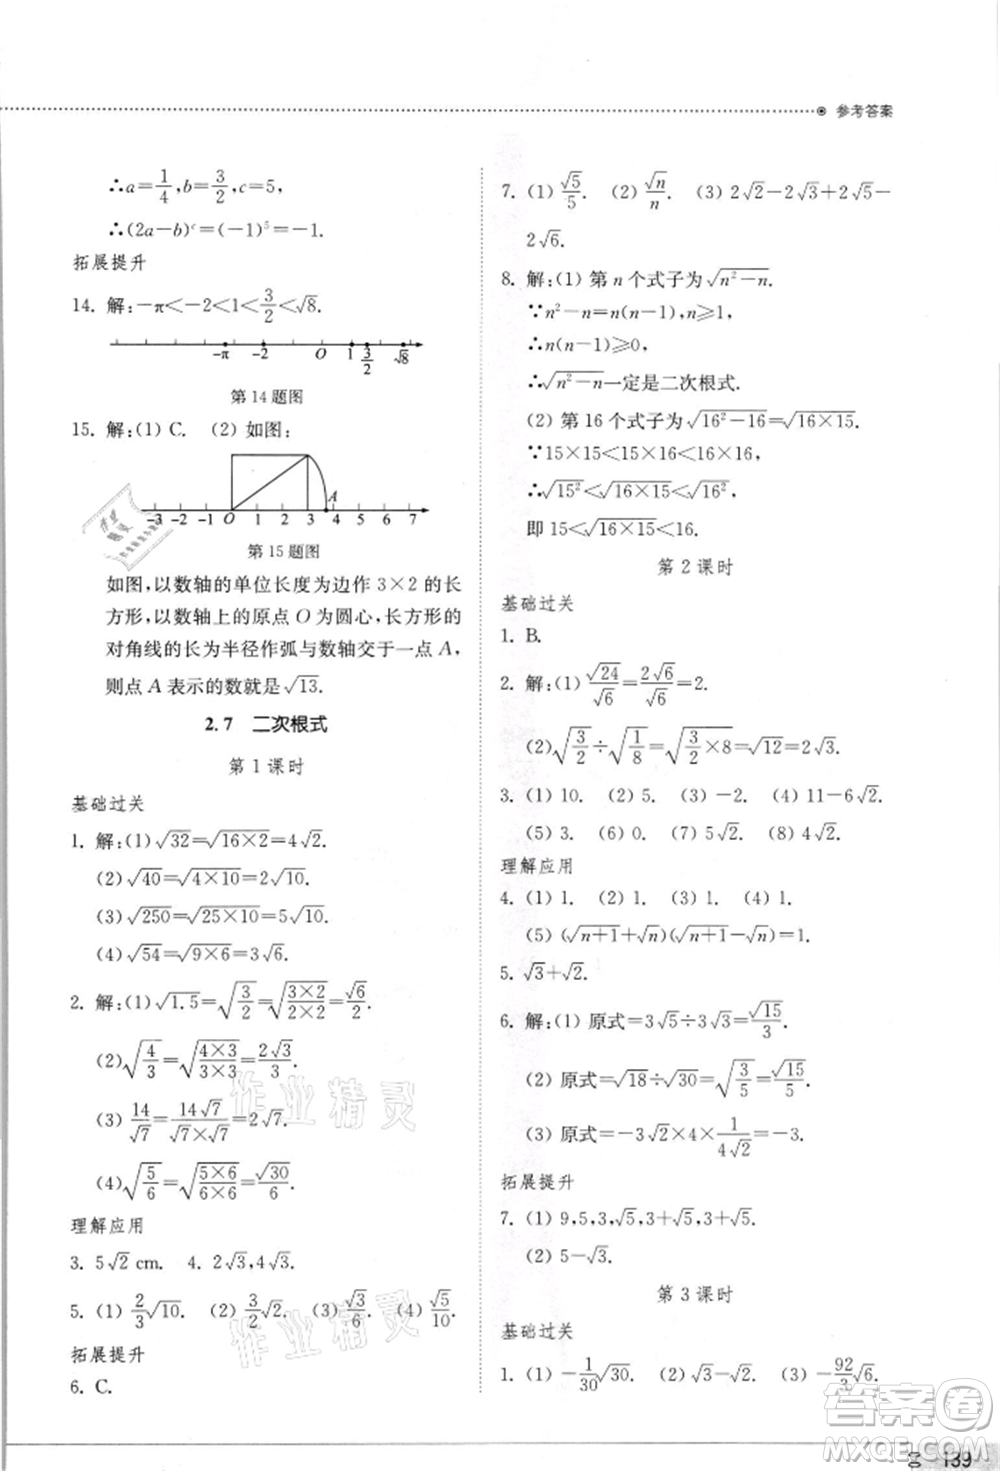 参考答案
∴a=1/4,b=3/2,c=5,
∴(2a-b)^c=(-1)^5=-1.
拓展提升
14. 解:-π<-2<1<3/2<√8.
-π -2 O 1 3/2 √8
第14题图
15. 解:(1) C. (2) 如图:
A
-3 -2 -1 O 1 2 3 4 5 6 7
第15题图
如图,以数轴的单位长度为边作 3×2 的长
方形,以数轴上的原点 O 为圆心,长方形的
对角线的长为半径作弧与数轴交于一点 A,
则点 A 表示的数就是√13.
2.7 二次根式
第1课时
基础过关
1. 解:(1)√32=√(16×2)=4√2.
(2)√40=√(4×10)=2√10.
(3)√250=√(25×10)=5√10.
(4)√54=√(9×6)=3√6.
2. 解:(1)√1.5=√(3/2)=√((3×2)/(2×2))=√6/2.
(2)√(4/3)=√((4×3)/(3×3))=2√3/3.
(3) 14/√7=14√7/(√7×√7)=2√7.
(4)√(5/6)=√((5×6)/(6×6))=√30/6.
理解应用
3. 5√2 cm. 4. 2√3,4√3.
5. (1) 2/3√10. (2) 3/2√2. (3) √3/6. (4) √5/10.
拓展提升
6. C.
7. (1) √5/5. (2) √n/n. (3) 2√2-2√3+2√5-
2√6.
8. 解:(1) 第 n 个式子为√(n²-n).
∵n²-n=n(n-1),n≥1,
∴n(n-1)≥0.
∴√(n²-n)一定是二次根式.
(2) 第 16 个式子为√(16²-16)=√(15×16).
∵15×15<15×16<16×16,
∴√15²<√(16×15)<√16²,
即 15<√(16×15)<16.
第2课时
基础过关
1. B.
2. 解:(1)√24/√6=2√6/√6=2.
(2)√(3/2)÷√(1/8)=√(3/2×8)=√12=2√3.
3. (1) 10. (2) 5. (3) -2. (4) 11-6√2.
(5) 3. (6) 0. (7) 5√2. (8) 4√2.
理解应用
4. (1) 1. (2) 1. (3) 1. (4) 1.
(5) (√(n+1)+√n)(√(n+1)-√n)=1.
5. √3+√2.
6. 解:(1) 原式=3√5÷3√3=√15/3.
(2) 原式=√18÷√30=√(3/5)=√15/5.
(3) 原式=-3√2×4×1/(4√2)=-3.
拓展提升
7. (1) 9,5,3,√5,3+√5,3+√5.
(2) 5-√3.
第3课时
基础过关
1. (1) -1/30√30. (2) √3-√2. (3) -92/3√2.
作业精灵
作业精灵
答案圈
MXQE.COM
139